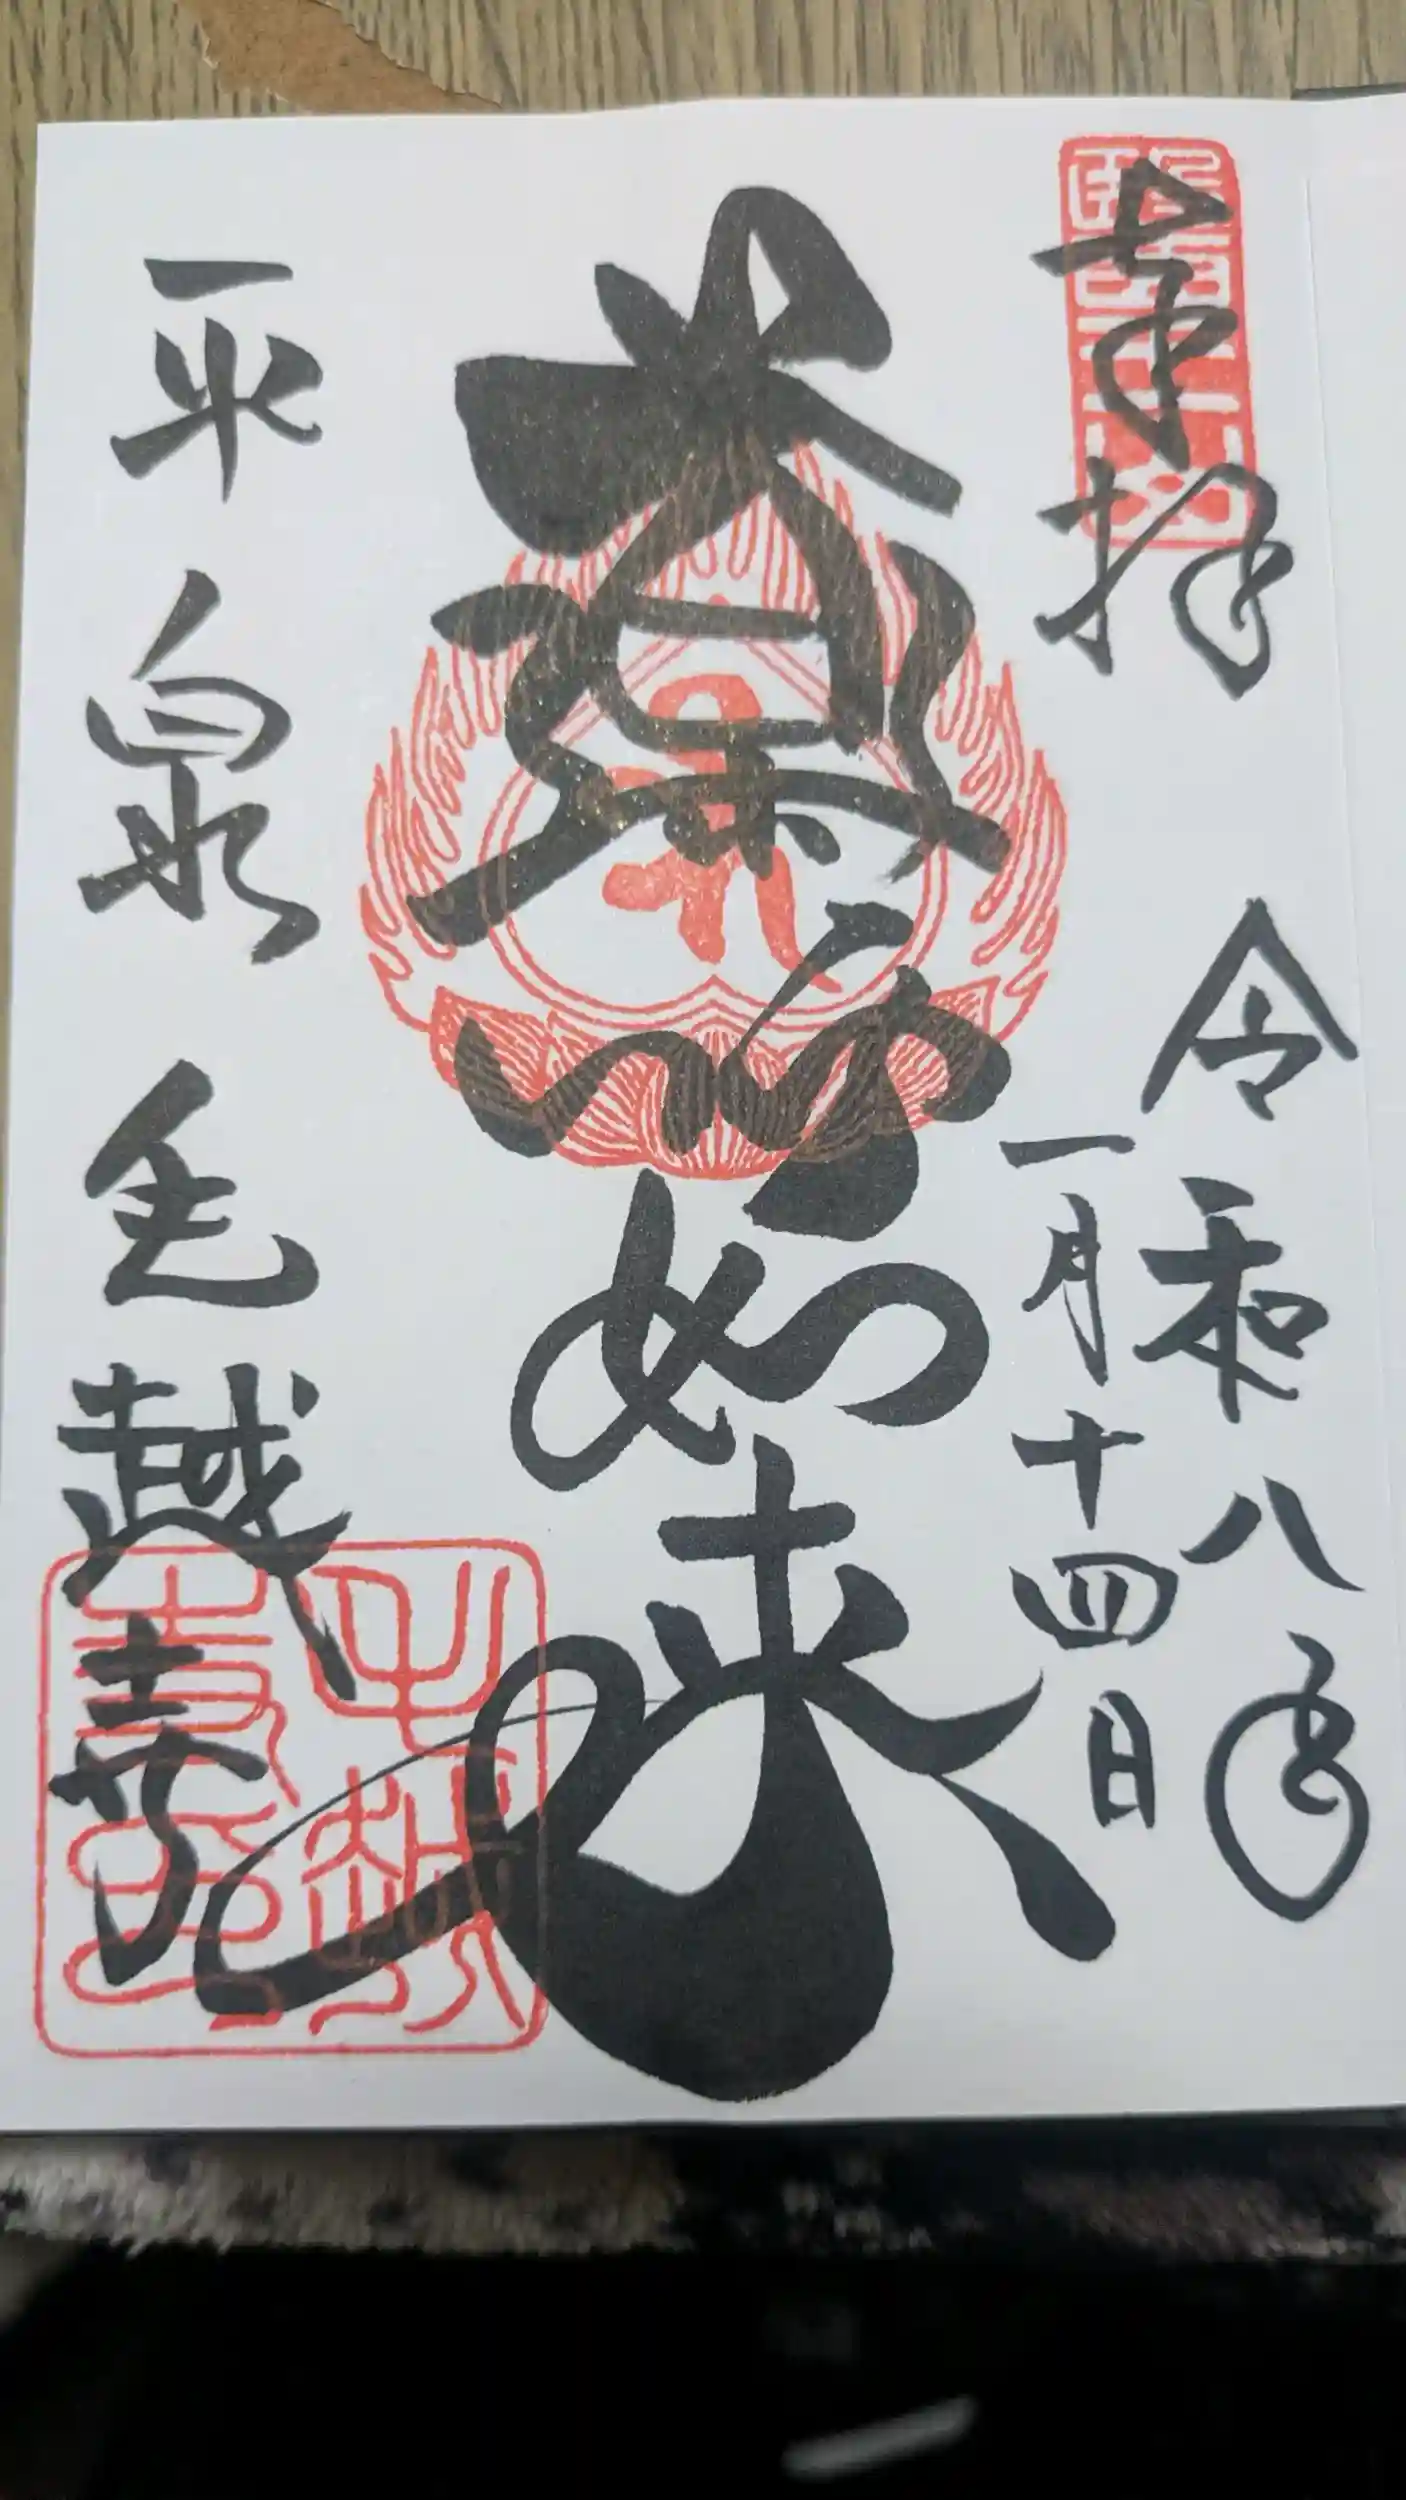 奉拝
令和八年
一月十四日
薬師如来
平泉毛越寺
毛越
寺印